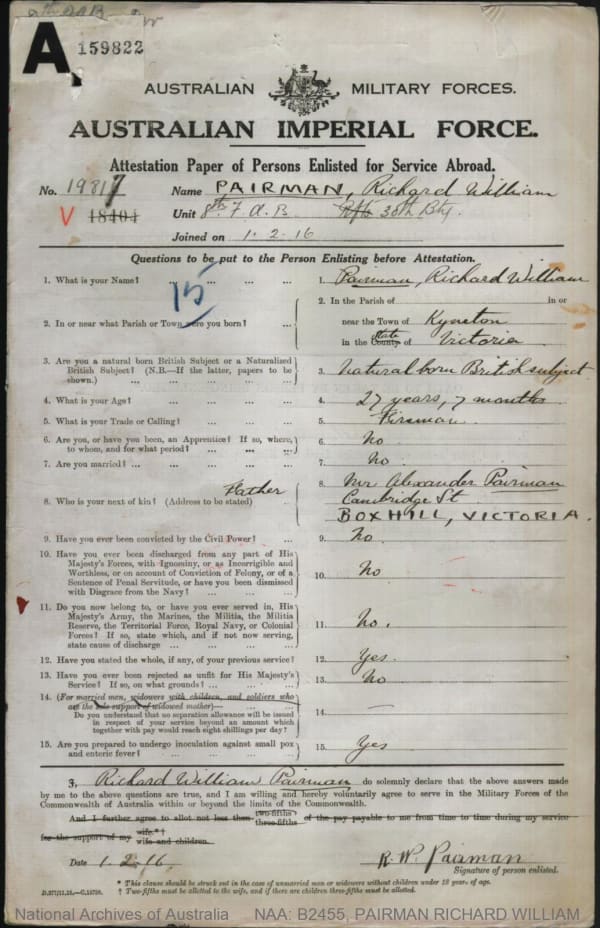 8th FAB
A
159822
AUSTRALIAN MILITARY FORCES.
AUSTRALIAN IMPERIAL FORCE.
Attestation Paper of Persons Enlisted for Service Abroad.
No. 19817 Name PAIRMAN, Richard William
V 18404 Unit 8th F.A.B 30th Bty.
Joined on 1.2.16
Questions to be put to the Person Enlisting before Attestation.
1. What is your Name? ... ... ... ... 1. Pairman, Richard William
15
2. In or near what Parish or Town were you born? ... 2. In the Parish of in or
near the Town of Kyneton
in the County of State Victoria
3. Are you a natural born British Subject or a Naturalized
British Subject? (N.B.—If the latter, papers to be
shown.) ... ... ... ... ... 3. Natural born British subject
4. What is your Age? ... ... ... ... 4. 27 years, 7 months
5. What is your Trade or Calling? ... ... ... 5. Fireman
6. Are you, or have you been, an Apprentice? If so, where,
to whom, and for what period? ... ... ... 6. No
7. Are you married? ... ... ... ... 7. No
8. Who is your next of kin? (Address to be stated) Father 8. Mr Alexander Pairman
Cambridge St
BOXHILL, VICTORIA.
9. Have you ever been convicted by the Civil Power? ... 9. No.
10. Have you ever been discharged from any part of His
Majesty's Forces, with Ignominy, or as Incorrigible and
Worthless, or on account of Conviction of Felony, or of a
Sentence of Penal Servitude, or have you been dismissed
with Disgrace from the Navy? ... ... ... 10. No
11. Do you now belong to, or have you ever served in, His
Majesty's Army, the Marines, the Militia, the Militia
Reserve, the Territorial Force, Royal Navy, or Colonial
Forces? If so, state which, and if not now serving,
state cause of discharge ... ... ... ... 11. No.
12. Have you stated the whole, if any, of your previous service? 12. Yes.
13. Have you ever been rejected as unfit for His Majesty's
Service? If so, on what grounds? ... ... ... 13. No
14. (For married men, widowers with children, and soldiers who
are the sole support of widowed mother)—
Do you understand that no separation allowance will be issued
in respect of your service beyond an amount which
together with pay would reach eight shillings per day? 14. —
15. Are you prepared to undergo inoculation against small pox
and enteric fever? ... ... ... ... 15. Yes
I, Richard William Pairman do solemnly declare that the above answers made
by me to the above questions are true, and I am willing and hereby voluntarily agree to serve in the Military Forces of the
Commonwealth of Australia within or beyond the limits of the Commonwealth.
And I further agree to allot not less than two-fifths three-fifths of the pay payable to me from time to time during my service
for the support of my wife.*† wife and children.
Date 1.2.16. R. W. Pairman
Signature of person enlisted.
* This clause should be struck out in the case of unmarried men or widowers without children under 18 years of age.
† Two-fifths must be allotted to the wife, and if there are children three-fifths must be allotted.
National Archives of Australia NAA: B2455, PAIRMAN RICHARD WILLIAM